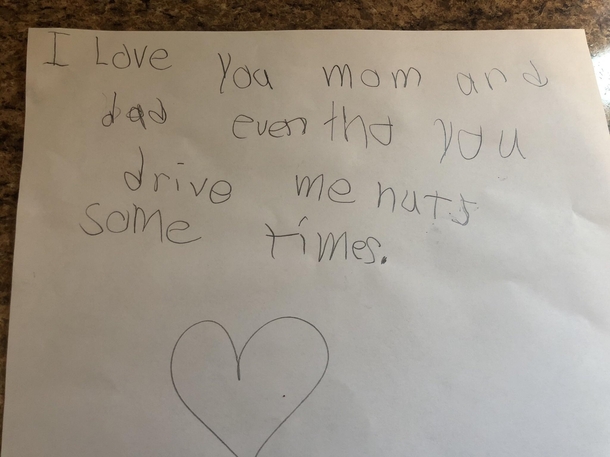 I Love you mom and
dad even tho you
drive me nuts
some times.